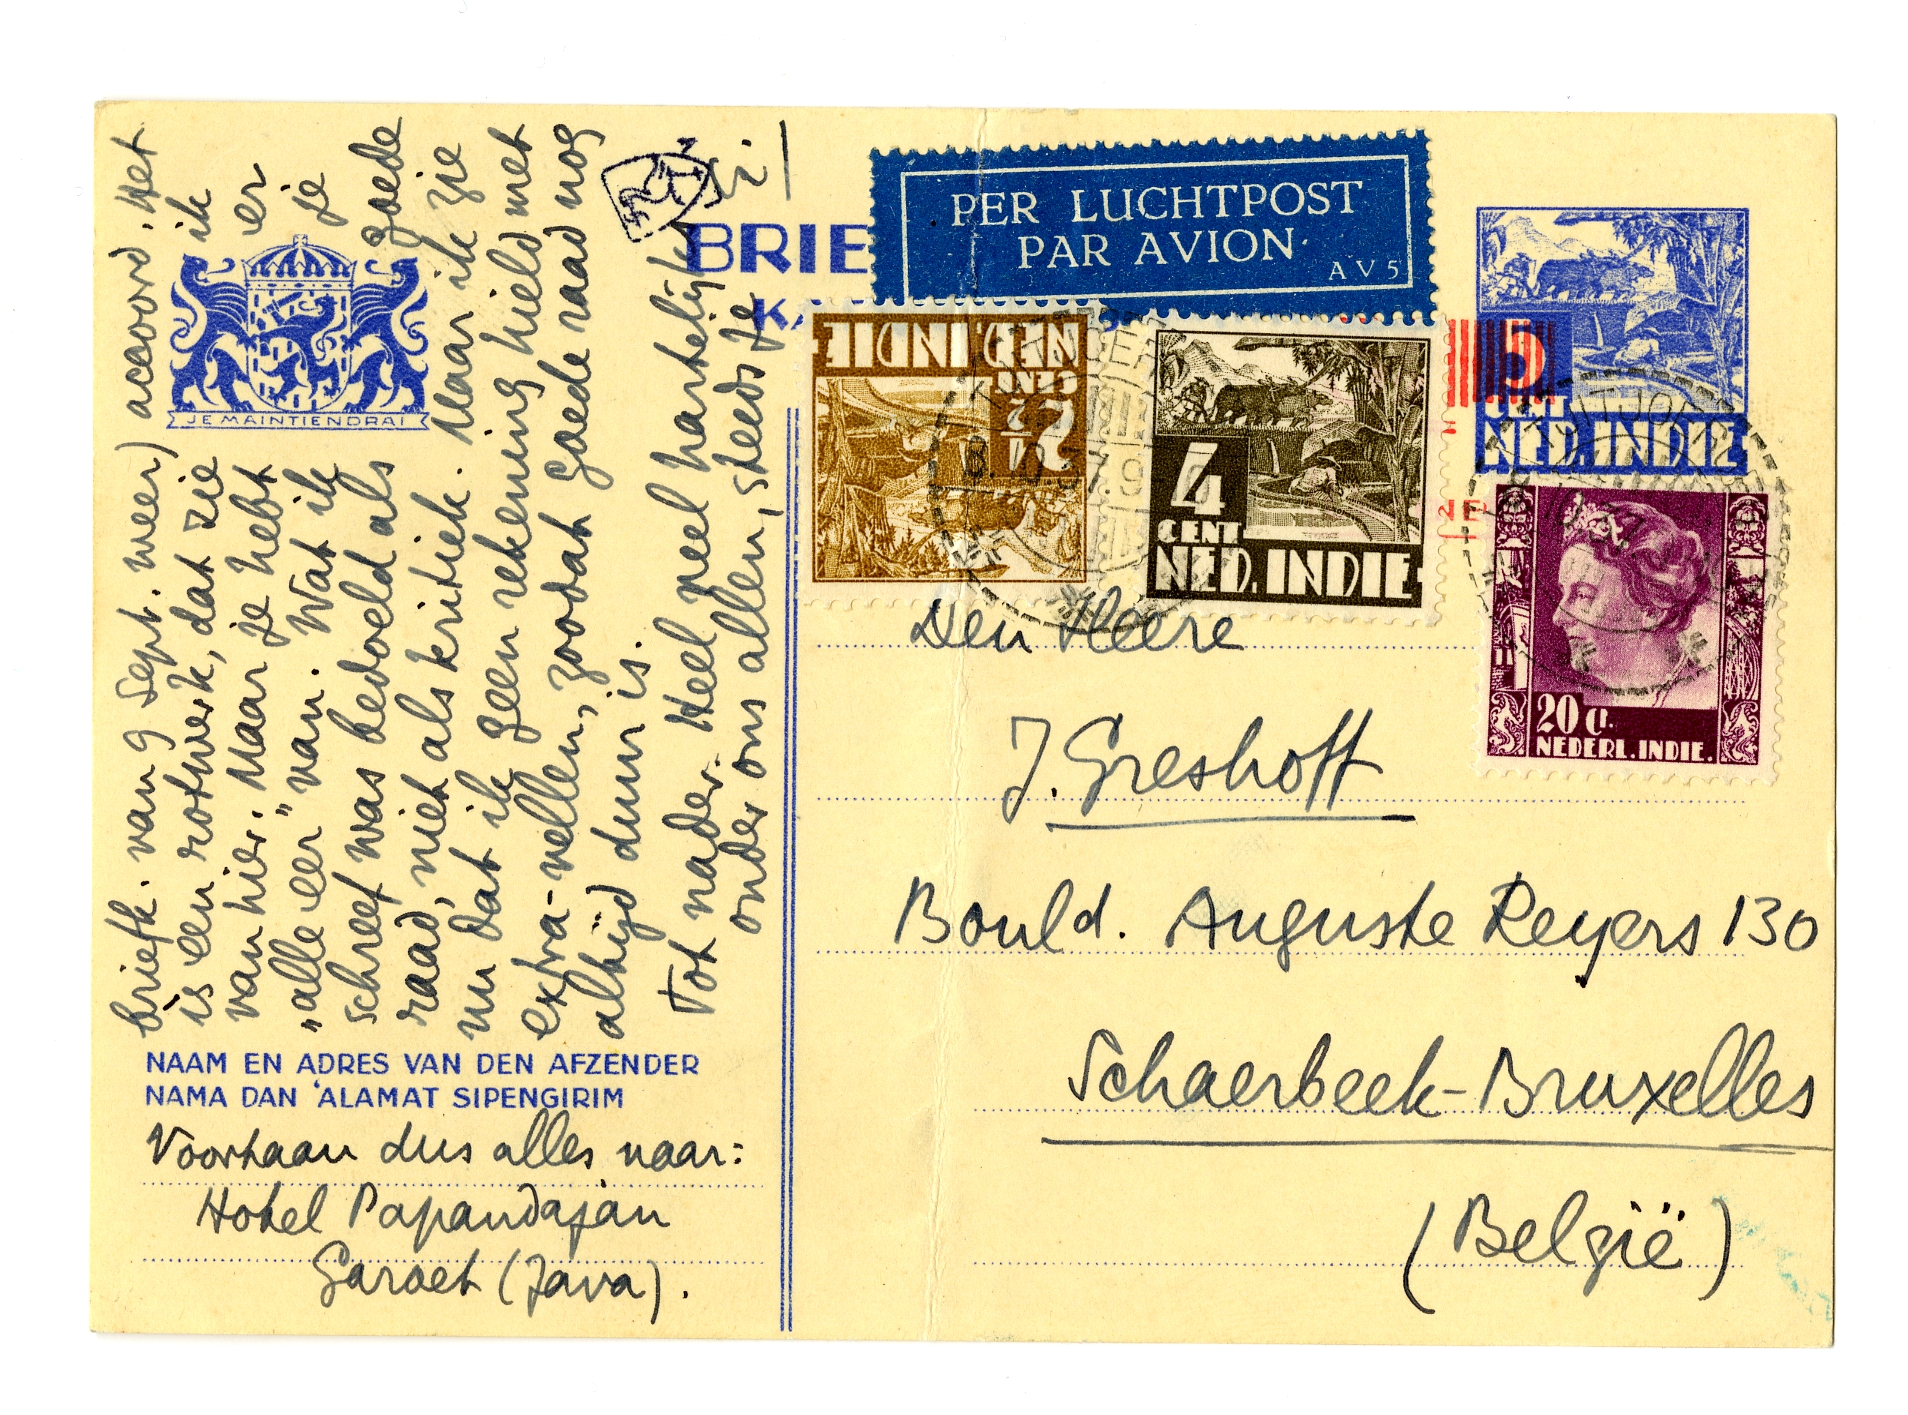 briefk. van 9 Sept. weer) accoord. Het
is een rotwerk, dat zie ik
van hier. Maar je hebt er
„alle eer" van. Wat ik je
schreef was bedoeld als goede
raad, niet als kritiek. Maar ik zie
nu dat ik geen rekening hield met
extra-vellen, zoodat goede raad nog
altijd duur is.
Tot nader. Heel veel hartelijks
onder ons allen, steeds je
E.
BRIE
KA
JE MAINTIENDRAI
NAAM EN ADRES VAN DEN AFZENDER
NAMA DAN 'ALAMAT SIPENGIRIM
Voortaan dus alles naar:
Hotel Papandajan
Garoet (Java).
PER LUCHTPOST
PAR AVION
AV5
NED. INDIE
CENT
7½
4
CENT
NED. INDIE
5
CENT
NED. INDIE
20 Ct.
NEDERL. INDIE.
Den Heere
J. Greshoff
Bould. Auguste Reyers 130
Schaerbeek-Bruxelles
(België)